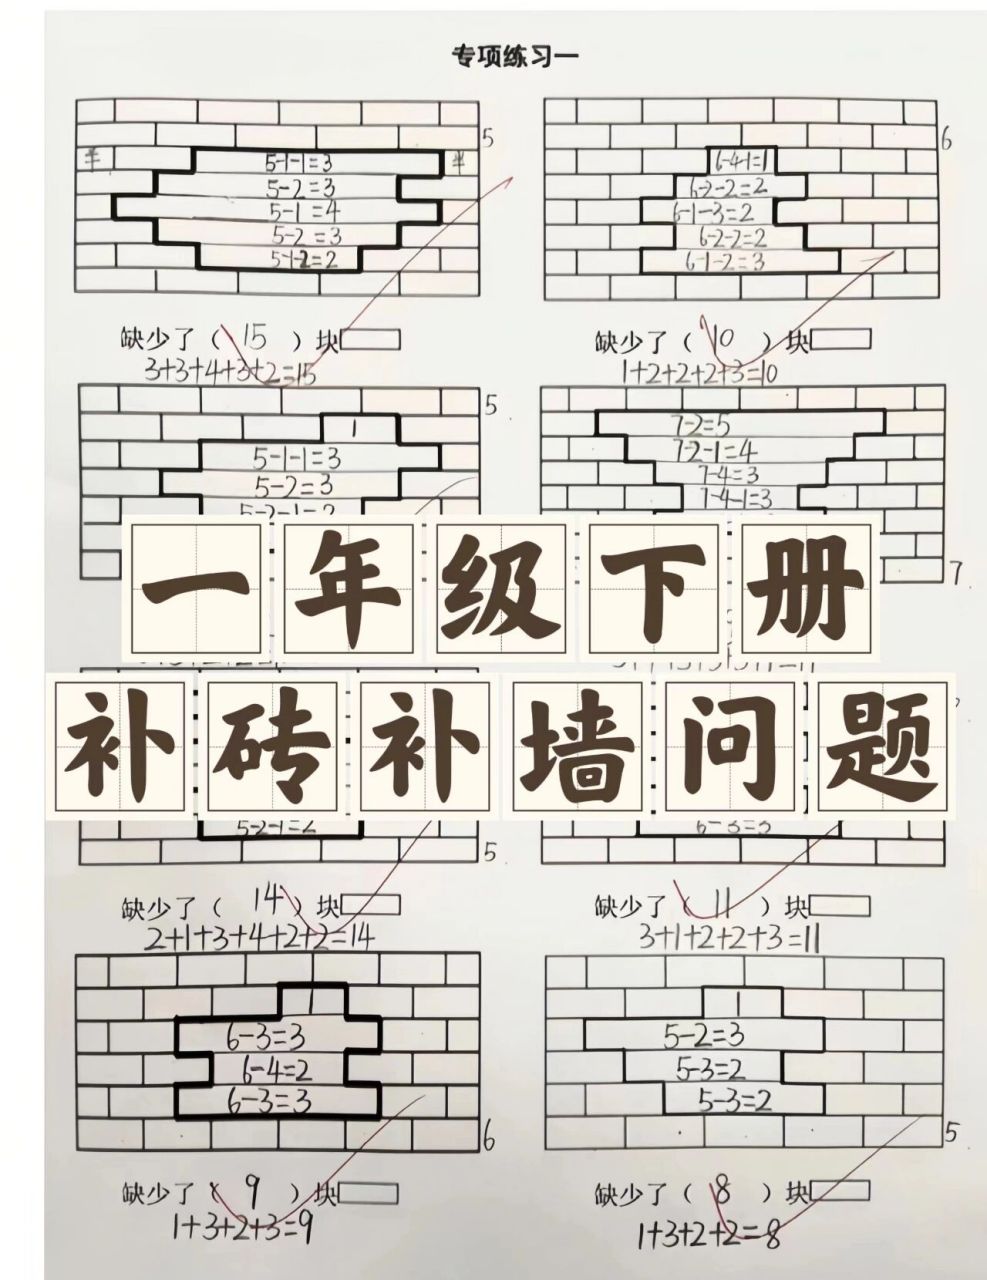 专项练习一
半 5-1-1=3 半 5
5-2=3
5-1=4
5-2=3
5-1-2=2
缺少了（ 15 ）块
3+3+4+3+2=15
6
6-4-1=1
6-2-2=2
6-1-3=2
6-2-2=2
6-1-2=3
缺少了（ 10 ）块
1+2+2+2+3=10
5
1
5-1-1=3
5-2=3
5-2-1=2
7-2=5
7-2-1=4
7-4=3
7-4-1=3
7
一年级下册
补砖补墙问题
5-2-1=2
5
缺少了（ 14 ）块
2+1+3+4+2+2=14
6-3=3
缺少了（ 11 ）块
3+1+2+2+3=11
1
6-3=3
6-4=2
6-3=3
6
缺少了（ 9 ）块
1+3+2+3=9
1
5-2=3
5-3=2
5-3=2
5
缺少了（ 8 ）块
1+3+2+2=8